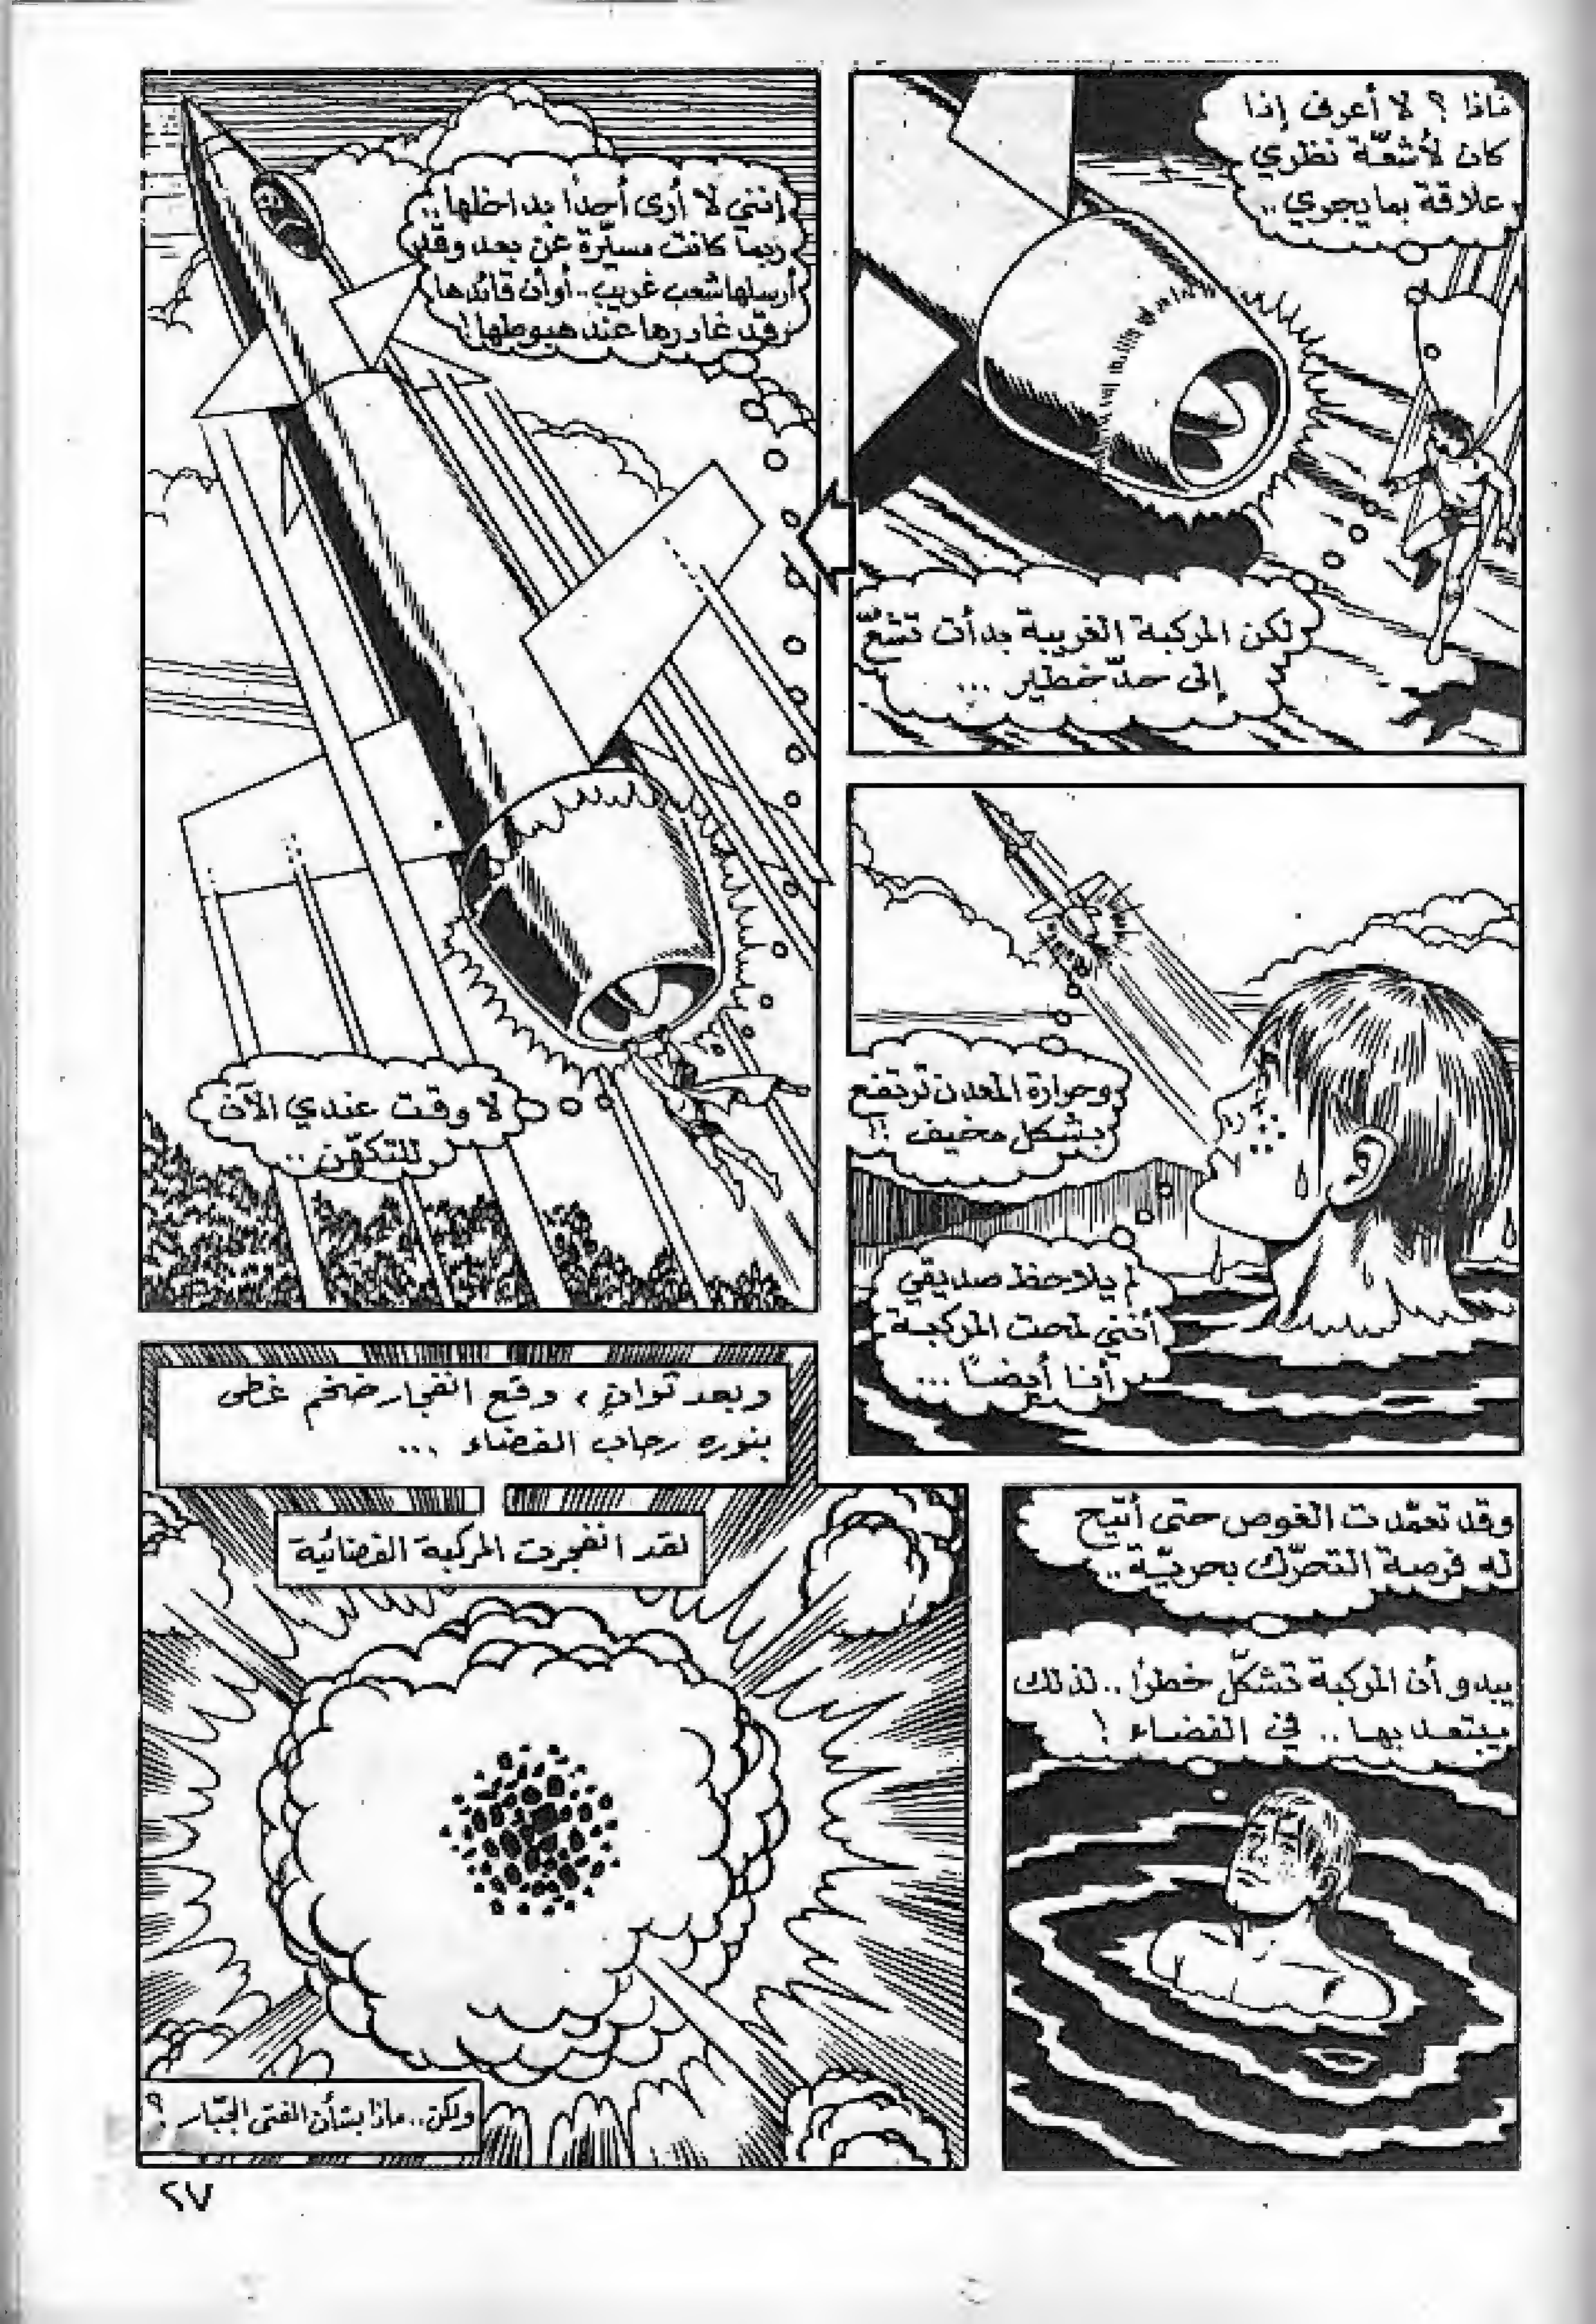 ماذا ؟ لا أعرف إذا
كان لأشعّة نظري
علاقة بما يجري..
لكن المركبة الغريبة بدأت تشعّ
إلى حدّ خطير ...
إنني لا أرى أحدًا بداخلها..
ربما كانت مسيّرة عن بعد وقد
أرسلها شعب غريب.. أو أن قائدها
قد غادرها عند هبوطها!
لا وقت عندي الآن
للتكهّن ..
وحرارة المعدن ترتفع
بشكل مخيف !!
لم يلاحظ صديقي
أنني لمحت المركبة
أنا أيضًا ...
وقد تعمّدت الغوص حتى أتيح
له فرصة التحرّك بحريّة..
يبدو أن المركبة تشكّل خطرًا.. لذلك
يبتعد بها .. في الفضاء !
وبعد ثوانٍ ، وقع انفجار ضخم غطى
بنوره رحاب الفضاء ...
لقد انفجرت المركبة الفضائية
ولكن.. ماذا بشأن الفتى الجبّار ؟
٢٧